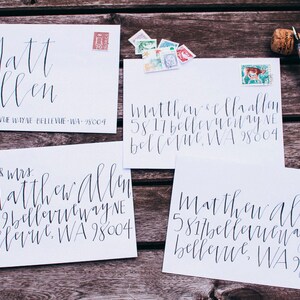 Matt
Allen
WAYNE · BELLEVUE · WA · 98004
matthew & ella allen
5817 bellevueway NE
bellevue, WA 98004
& mrs.
matthew Allen
bellevueway NE
bellevue, WA 98004
matthew Allen
5817 bellevueway
bellevue, WA 98